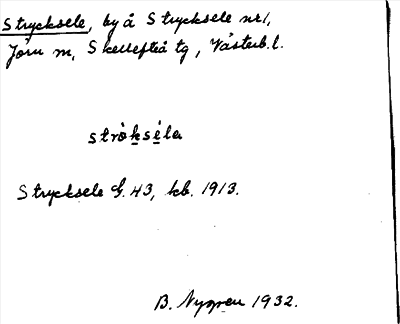 Strycksele, by å Strycksele nr 1,
Jörn m, Skellefteå tg, Västerb. l.
strö̀ksé̀la
Strycksele G. 43, kb. 1913.
B. Nygren 1932.